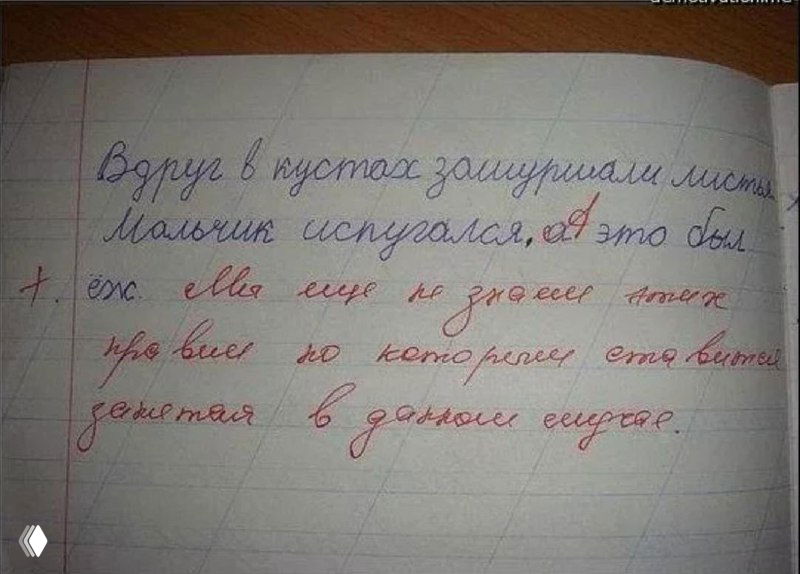 Вдруг в кустах зашуршали листья
Мальчик испугался, а это был
т. ёж. Мы еще не знаем этих
правил по которым ставится
запятая в данном случае.